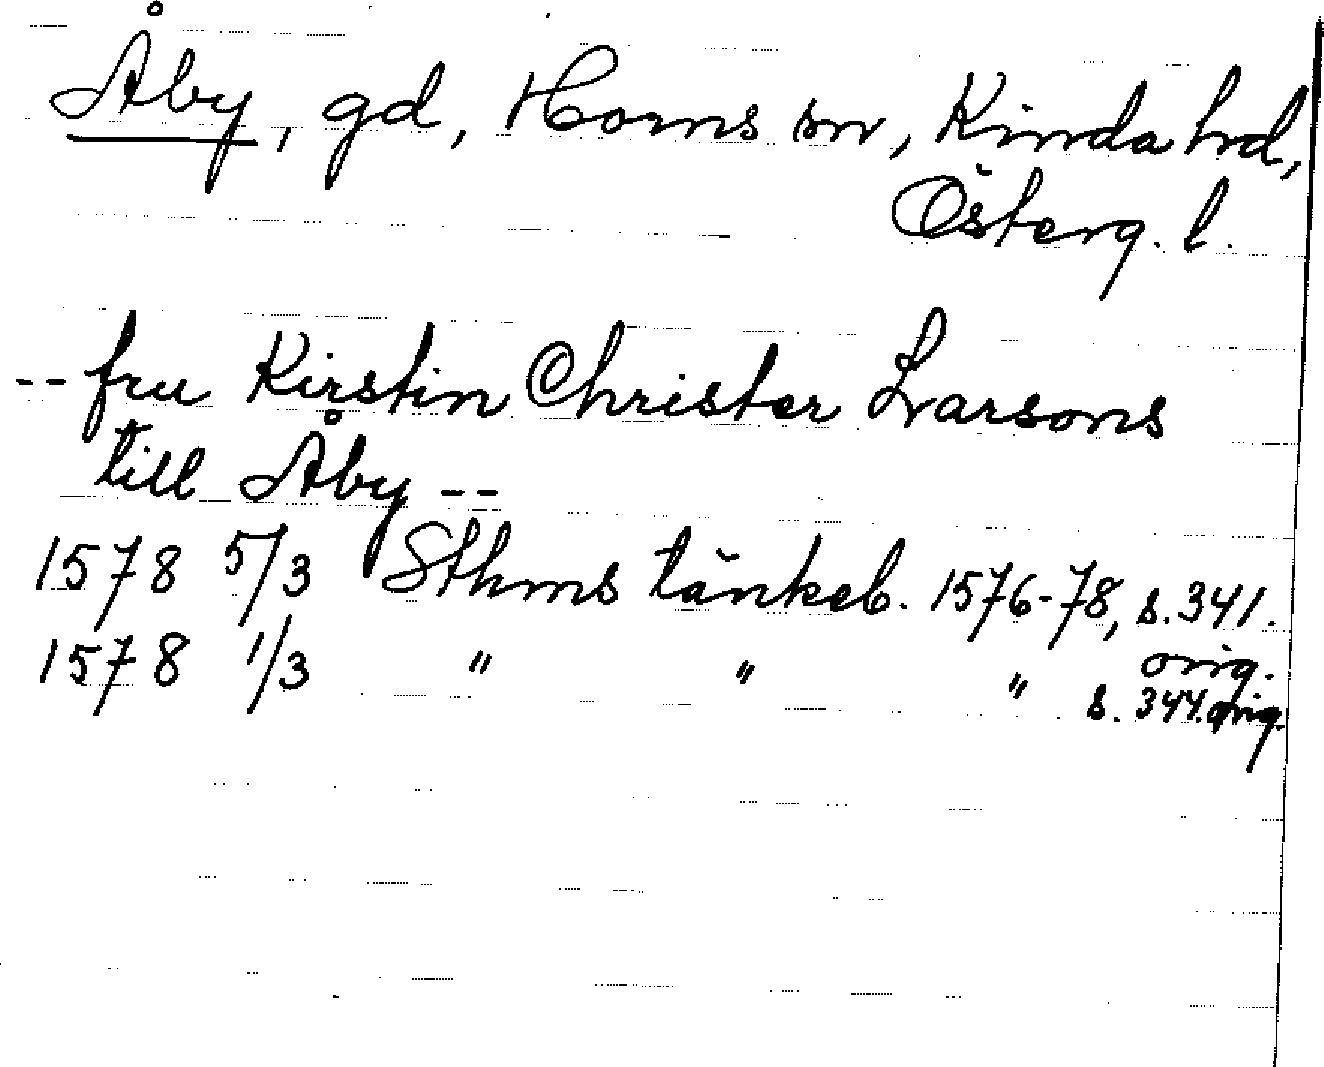 Åby, gd, Horns sn, Kinda hd,
Österg. l.
-- fru Kirstin Christer Larsons
till Åby --
1578 5/3 Sthms tänkeb. 1576-78, s. 341.
orig.
1578 1/3 " " " s. 344. orig.